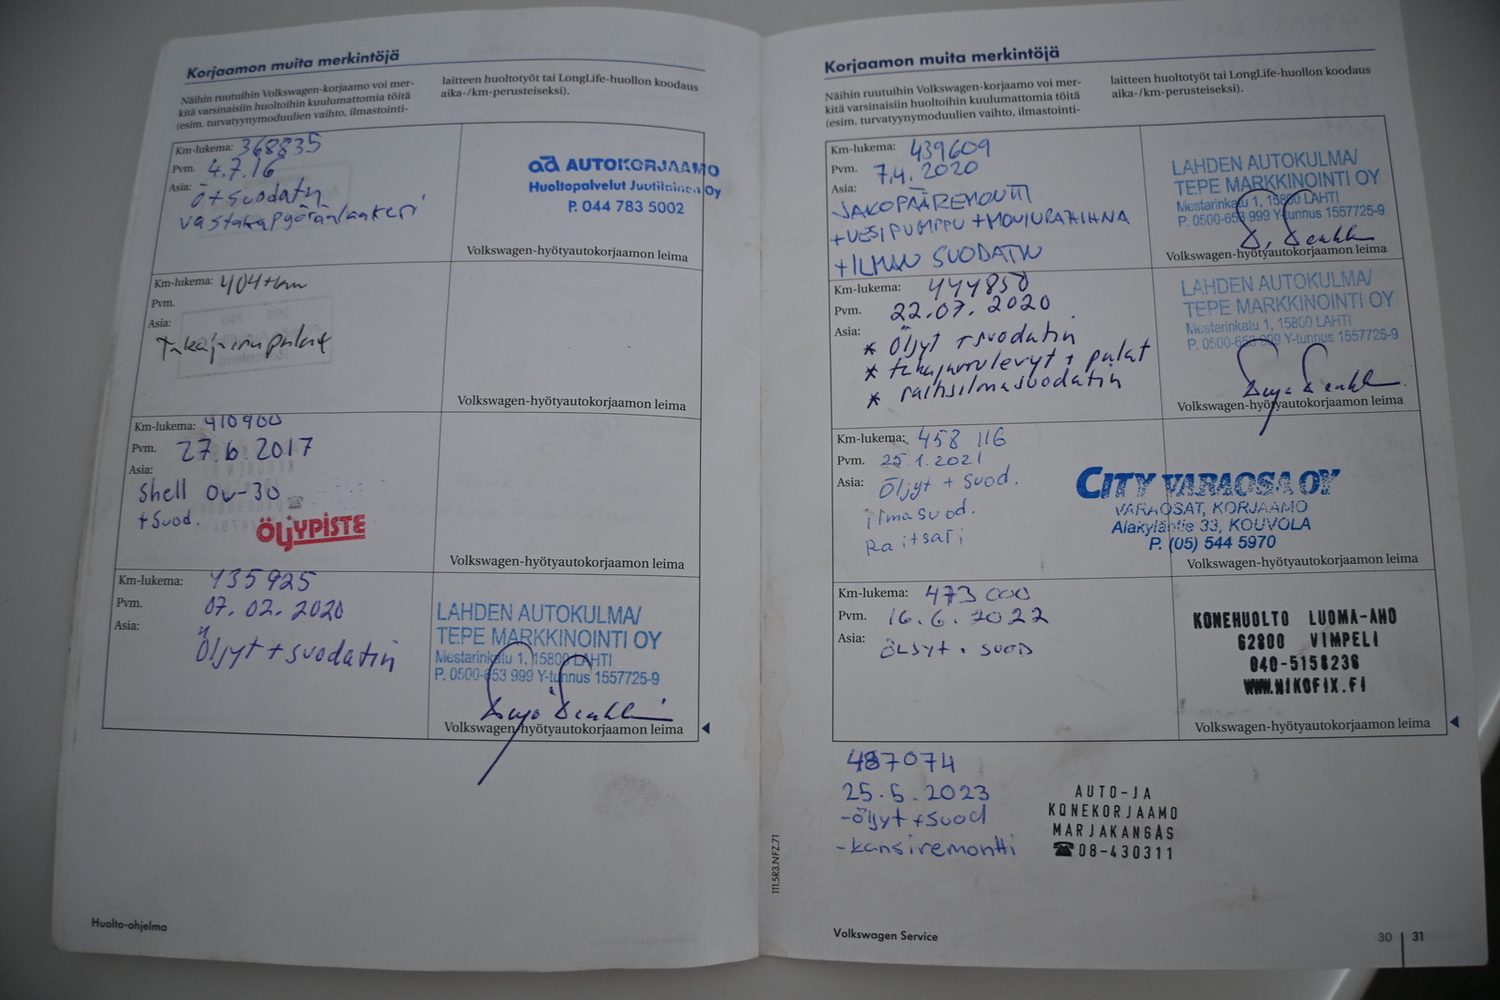 Korjaamon muita merkintöjä
Näihin ruutuihin Volkswagen-korjaamo voi mer-
kitä varsinaisiin huoltoihin kuulumattomia töitä
(esim. turvatyynymoduulien vaihto, ilmastointi-
laitteen huoltotyöt tai LongLife-huollon koodaus
aika-/km-perusteiseksi).
Km-lukema: 368835
Pvm. 4.7.16
Asia: Ö+suodatin
vastakapyöränlaakeri
ad AUTOKORJAAMO
Huoltopalvelut Juutilainen Oy
P. 044 783 5002
Volkswagen-hyötyautokorjaamon leima
Km-lukema: 404tkm
Pvm.
Asia:
Takajarrupalat
Volkswagen-hyötyautokorjaamon leima
Km-lukema: 410900
Pvm. 27.6.2017
Asia:
Shell 0w-30
+ Suod.
ÖLJYPISTE
Volkswagen-hyötyautokorjaamon leima
Km-lukema: 435925
Pvm. 07.02.2020
Asia:
Öljyt + suodatin
LAHDEN AUTOKULMA/
TEPE MARKKINOINTI OY
Mestarinkatu 1, 15800 LAHTI
P. 0500-653 999 Y-tunnus 1557725-9
Volkswagen-hyötyautokorjaamon leima
Huolto-ohjelma
Korjaamon muita merkintöjä
Näihin ruutuihin Volkswagen-korjaamo voi mer-
kitä varsinaisiin huoltoihin kuulumattomia töitä
(esim. turvatyynymoduulien vaihto, ilmastointi-
laitteen huoltotyöt tai LongLife-huollon koodaus
aika-/km-perusteiseksi).
Km-lukema: 439609
Pvm. 7.4.2020
Asia:
JAKOPÄÄREMONTTI
+VESIPUMPPU +MONIURAHIHNA
+ILMAN SUODATIN
LAHDEN AUTOKULMA/
TEPE MARKKINOINTI OY
Mestarinkatu 1, 15800 LAHTI
P. 0500-653 999 Y-tunnus 1557725-9
Volkswagen-hyötyautokorjaamon leima
Km-lukema: 444850
Pvm. 22.07.2020
Asia:
* Öljyt + suodatin
* takajarrulevyt + palat
* raitisilmasuodatin
LAHDEN AUTOKULMA/
TEPE MARKKINOINTI OY
Mestarinkatu 1, 15800 LAHTI
P. 0500-653 999 Y-tunnus 1557725-9
Volkswagen-hyötyautokorjaamon leima
Km-lukema: 458 116
Pvm. 25.1.2021
Asia: Öljyt + suod.
ilmasuod.
Raitsari
CITY VARAOSA OY
VARAOSAT, KORJAAMO
Alakyläntie 33, KOUVOLA
P. (05) 544 5970
Volkswagen-hyötyautokorjaamon leima
Km-lukema: 473 000
Pvm. 16.6.2022
Asia: ÖLJYT + SUOD
KONEHUOLTO LUOMA-AHO
62800 VIMPELI
040-5158236
WWW.NIKOFIX.FI
Volkswagen-hyötyautokorjaamon leima
487074
25.5.2023
-öljyt +suod
-kansiremontti
AUTO-JA
KONEKORJAAMO
MARJAKANGAS
☎08-430311
111.5R3.NFZ.71
Volkswagen Service
30 | 31